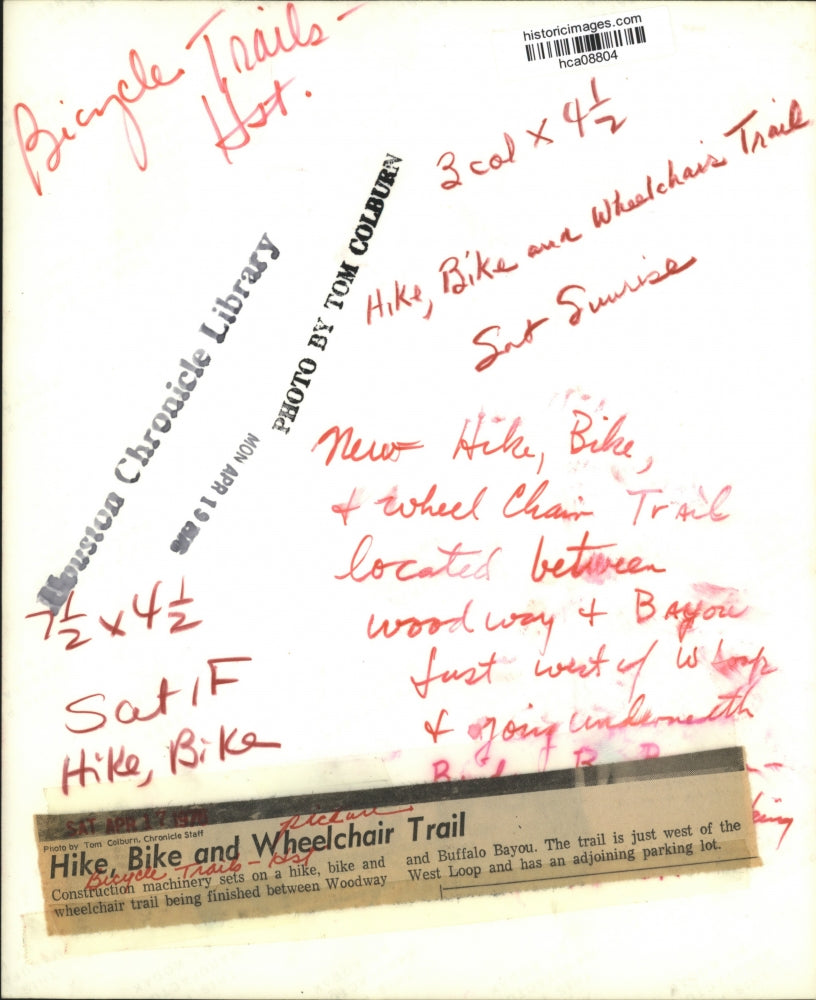 historicimages.com
hca08804
Bicycle Trails-
Hst.
3 col x 4 1/2
Hike, Bike and Wheelchair Trail
Sat Sunrise
PHOTO BY TOM COLBURN
Houston Chronicle Library
MON APR 19
New Hike, Bike,
& wheel Chair Trail
located between
woodway & Bayou
Just west of W Loop
& going underneath
7 1/2 x 4 1/2
Sat 1F
Hike, Bike
SAT APR 17 1970
picture
Photo by Tom Colburn, Chronicle Staff
Hike, Bike and Wheelchair Trail
Bicycle Trails-Hst
Construction machinery sets on a hike, bike and
wheelchair trail being finished between Woodway
and Buffalo Bayou. The trail is just west of the
West Loop and has an adjoining parking lot.